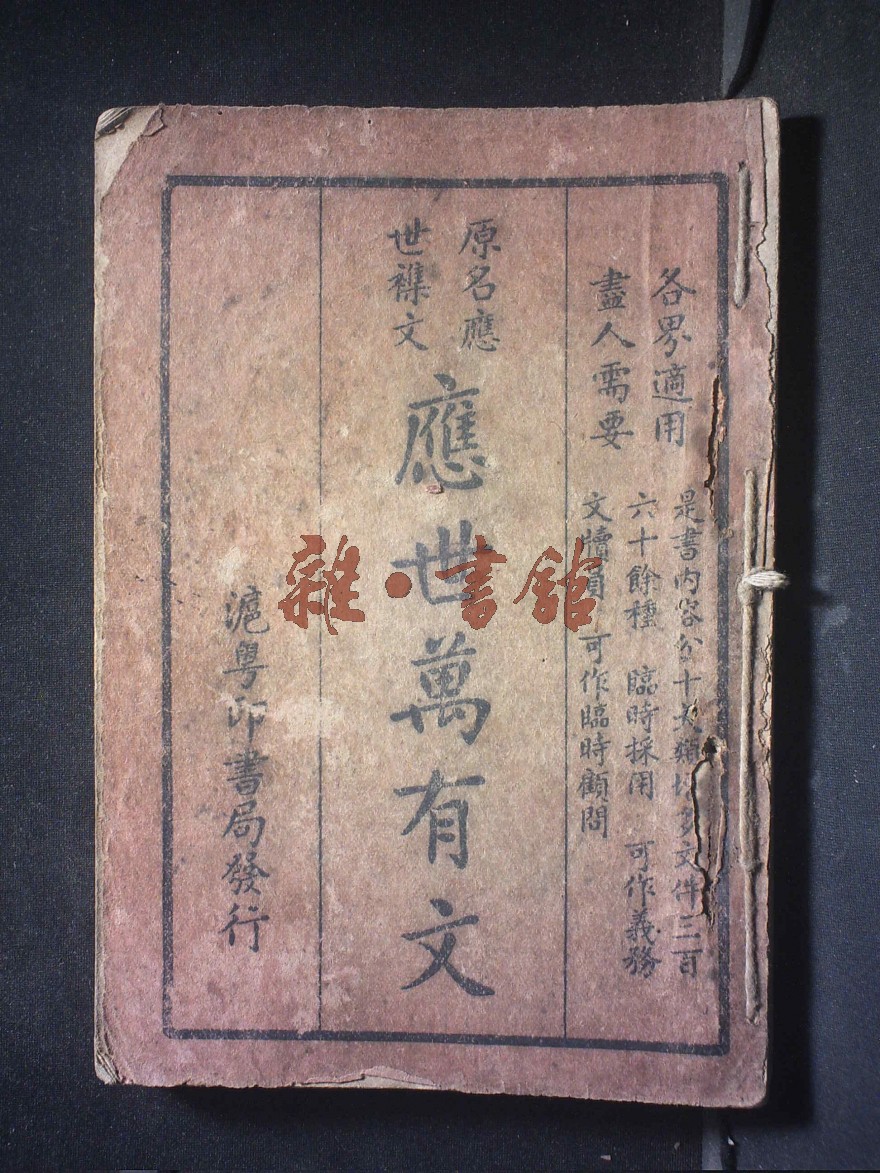 各界適用
盡人需要
是書內容分十大類 文件三百
六十餘種 臨時採用 可作義務
文牘員 可作臨時顧問
原名應
世襍文
應世萬有文
滬粵印書局發行
雜·書館